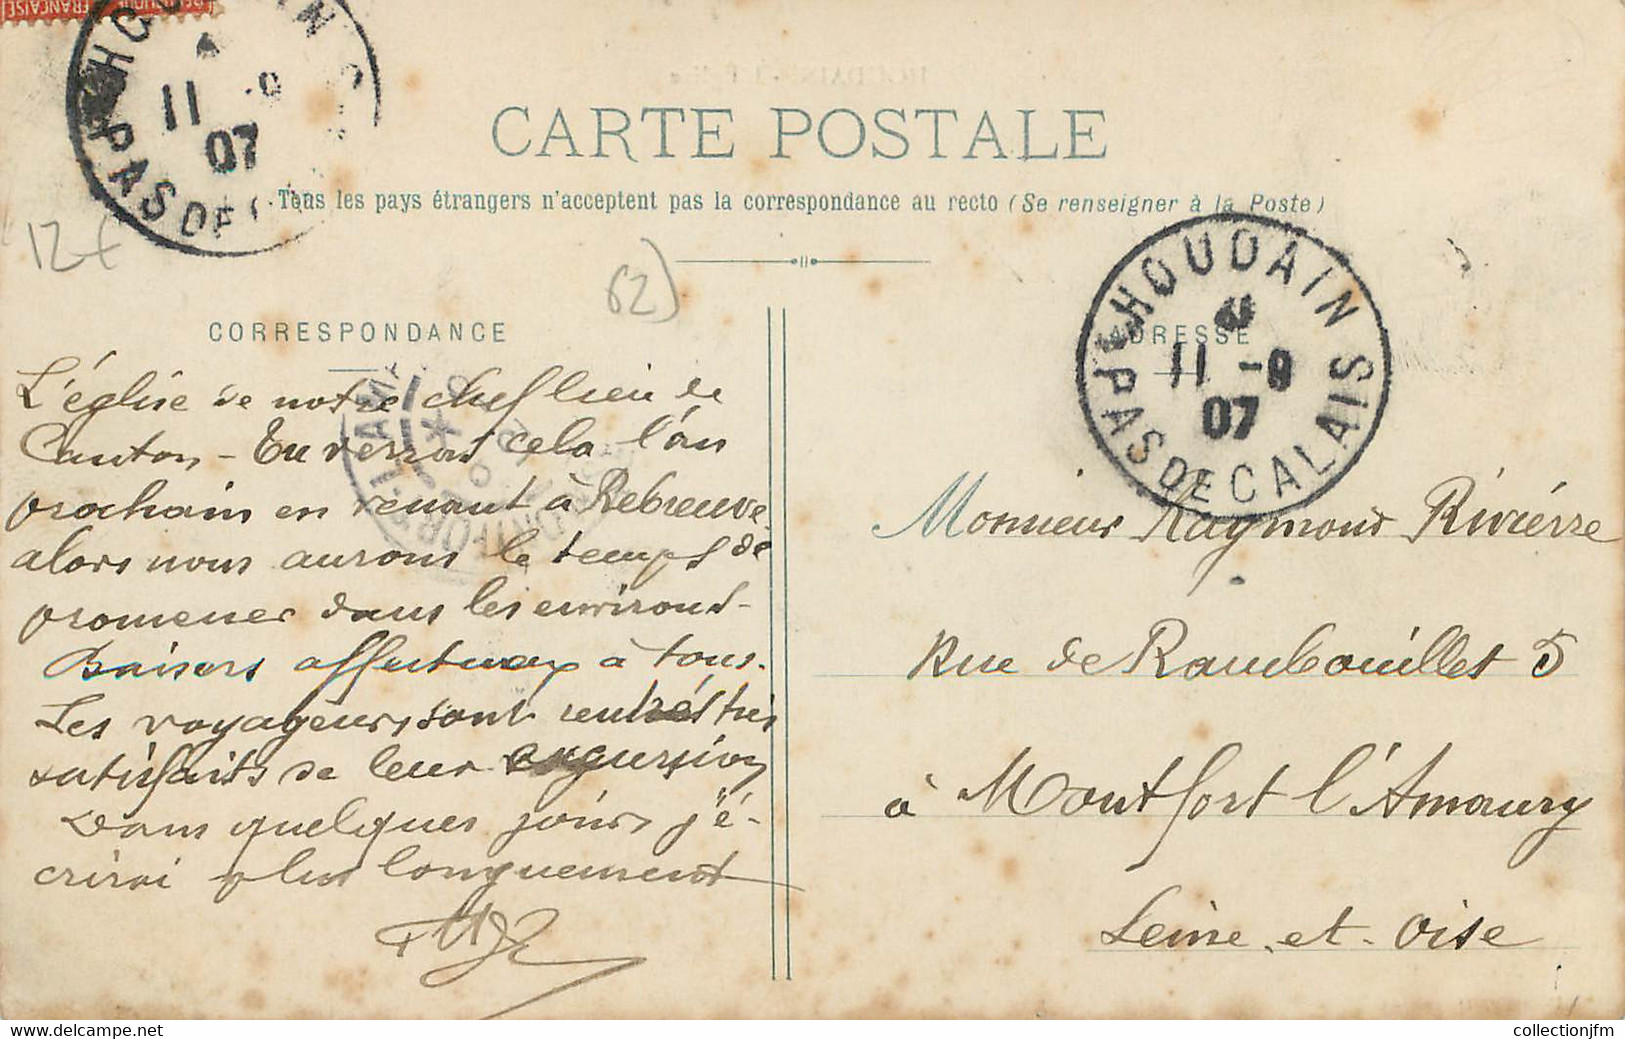 RÉPUBLIQUE FRANÇAISE
HOUDAIN
11 -9
07
PAS DE C
HOUDAIN - L'Église
CARTE POSTALE
Tous les pays étrangers n'acceptent pas la correspondance au recto (Se renseigner à la Poste)
12 f
62)
CORRESPONDANCE
L'église de notre chef lieu de
Canton - Tu verras cela l'an
prochain en venant à Rebreuve
alors nous aurons le temps de
promener dans les environs -
Baisers affectueux à tous.
Les voyageurs sont rentrés très
satisfaits de leur excursion
Dans quelques jours j'é-
crirai plus longuement
HOUDAIN
11 -9
07
PAS DE CALAIS
ADRESSE
Monsieur Raymond Rivièrre
Rue de Rambouillet 5
à Montfort l'Amaury
Seine-et-Oise
collectionjfm